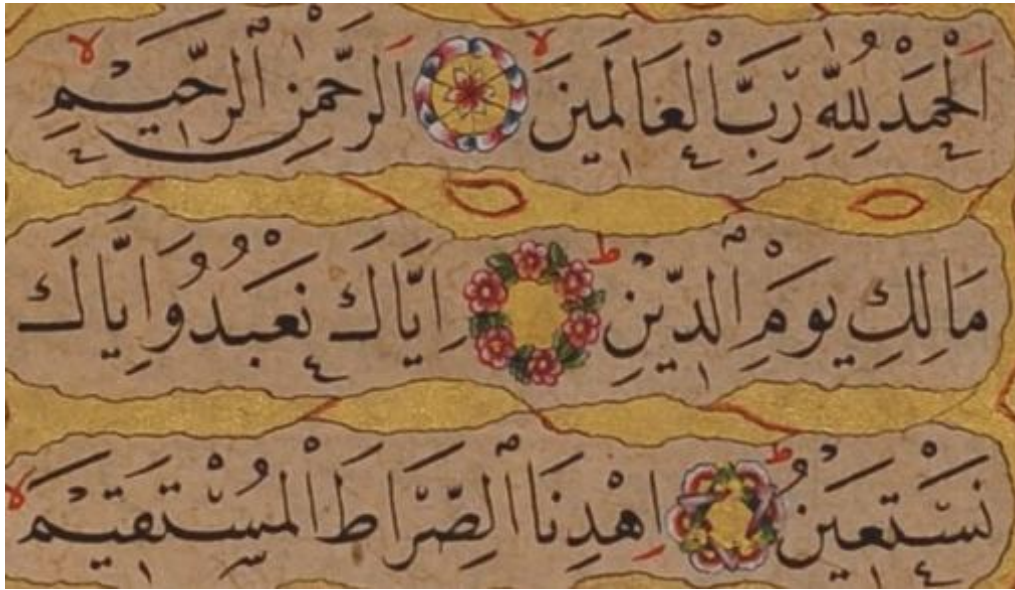 اَلْحَمْدُ لِلّٰهِ رَبِّ الْعَالَمِينَ ۙ اَلرَّحْمٰنِ الرَّحِيمِ ۙ
مَالِكِ يَوْمِ الدِّينِ ۜ اِيَّاكَ نَعْبُدُ وَاِيَّاكَ
نَسْتَعِينُ ۜ اِهْدِنَا الصِّرَاطَ الْمُسْتَقِيمَ ۙ